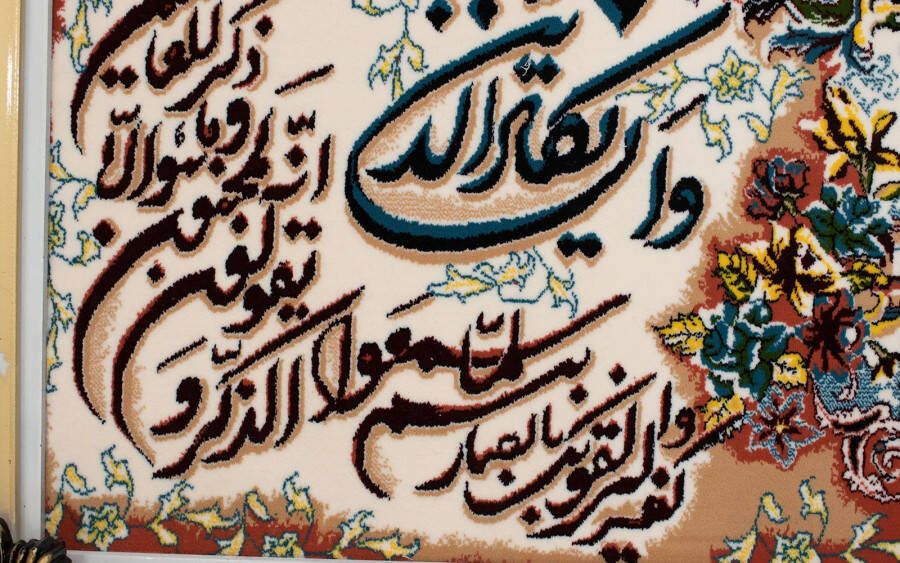 وَاِن يكاد الذين
كفروا ليزلقونك بابصارهم
لمّا سمعوا
الذّكر وَ
يقولون
انّه لمجنون
وما هو الّا
ذكر للعالمين